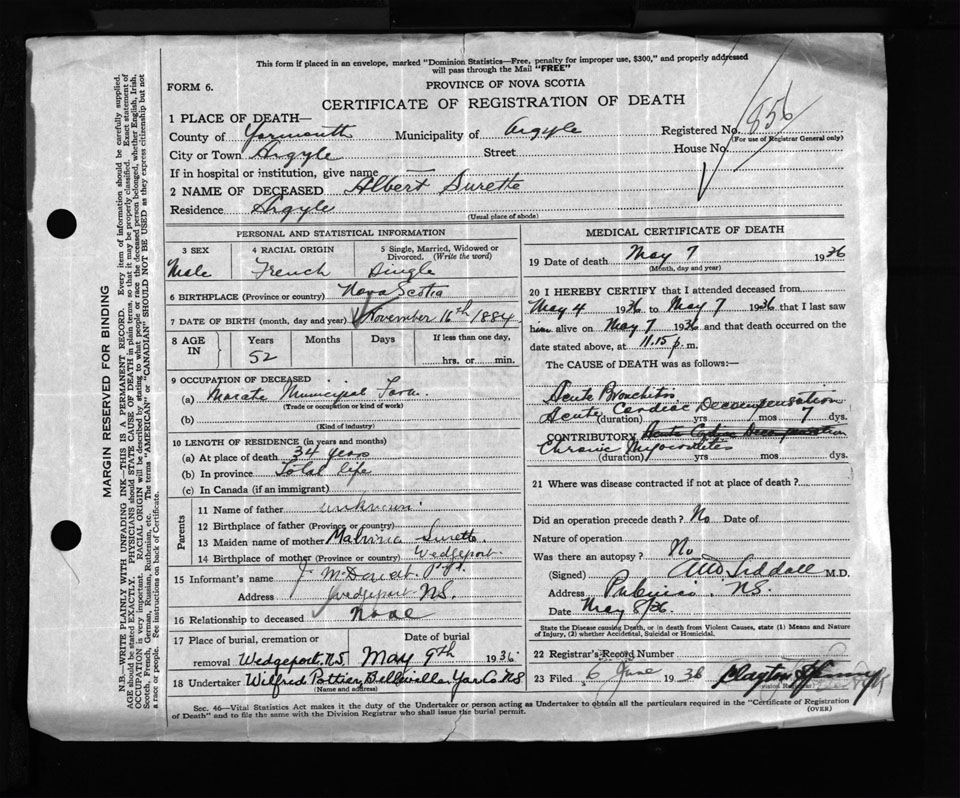 This form if placed in an envelope, marked "Dominion Statistics—Free, penalty for improper use, $300," and properly addressed
will pass through the Mail "FREE"
FORM 6.
PROVINCE OF NOVA SCOTIA
CERTIFICATE OF REGISTRATION OF DEATH
856
1 PLACE OF DEATH—
County of Yarmouth Municipality of Argyle Registered No.
(For use of Registrar General only)
City or Town Argyle Street House No.
If in hospital or institution, give name —
2 NAME OF DECEASED Albert Surette
Residence Argyle
(Usual place of abode)
PERSONAL AND STATISTICAL INFORMATION
3 SEX 4 RACIAL ORIGIN 5 Single, Married, Widowed or
Divorced. (Write the word)
Male French Single
6 BIRTHPLACE (Province or country) Nova Scotia
7 DATE OF BIRTH (month, day and year) November 16th 1884
8 AGE IN Years Months Days If less than one day,
52 hrs. or min.
9 OCCUPATION OF DECEASED
(a) Municipal Farm
(Trade or occupation or kind of work)
(b)
(Kind of industry)
10 LENGTH OF RESIDENCE (in years and months)
(a) At place of death 34 years
(b) In province Total life
(c) In Canada (if an immigrant)
Parents
11 Name of father unknown
12 Birthplace of father (Province or country)
13 Maiden name of mother Malvina Surette
14 Birthplace of mother (Province or country) Wedgeport
15 Informant's name J.
Address Wedgeport N.S.
16 Relationship to deceased None
17 Place of burial, cremation or Date of burial
removal Wedgeport, N.S. May 9th 1936
18 Undertaker Wilfred Pottier Belleville Yar Co NS
(Name and address)
MEDICAL CERTIFICATE OF DEATH
19 Date of death May 7 1936
(Month, day and year)
20 I HEREBY CERTIFY that I attended deceased from
May 4 1936 to May 7 1936 that I last saw
him alive on May 7 1936 and that death occurred on the
date stated above, at 11.15 p.m.
The CAUSE OF DEATH was as follows:—
Acute Bronchitis
Acute Cardiac Decompensation
(duration) yrs mos 7 dys.
CONTRIBUTORY Acute Cardiac Decompensation
Chronic Myocarditis
(duration) yrs mos dys.
21 Where was disease contracted if not at place of death?
Did an operation precede death? No Date of
Nature of operation
Was there an autopsy? No
(Signed) Siddall M.D.
Address Pubnico. N.S.
Date May 8/36.
State the Disease causing Death, or in death from Violent Causes, state (1) Means and Nature
of Injury, (2) whether Accidental, Suicidal or Homicidal.
22 Registrar's Record Number
23 Filed 6 June 1936 Clayton
Division Registrar
Sec. 46—Vital Statistics Act makes it the duty of the Undertaker or person acting as Undertaker to obtain all the particulars required in the "Certificate of Registration
of Death" and to file the same with the Division Registrar who shall issue the burial permit.
(OVER)
MARGIN RESERVED FOR BINDING
N.B.—WRITE PLAINLY WITH UNFADING INK—THIS IS A PERMANENT RECORD. Every item of information should be carefully supplied.
AGE should be stated EXACTLY. PHYSICIANS should STATE CAUSE OF DEATH in plain terms, so that it may be properly classified. Exact statement of
OCCUPATION is very important. RACIAL ORIGIN will be described by stating to what people or race the deceased person belonged, whether English, Irish,
Scotch, French, German, Russian, Ruthenian, etc. The terms "AMERICAN" or "CANADIAN" SHOULD NOT BE USED as they express citizenship but not
a race or people. See instructions on back of Certificate.